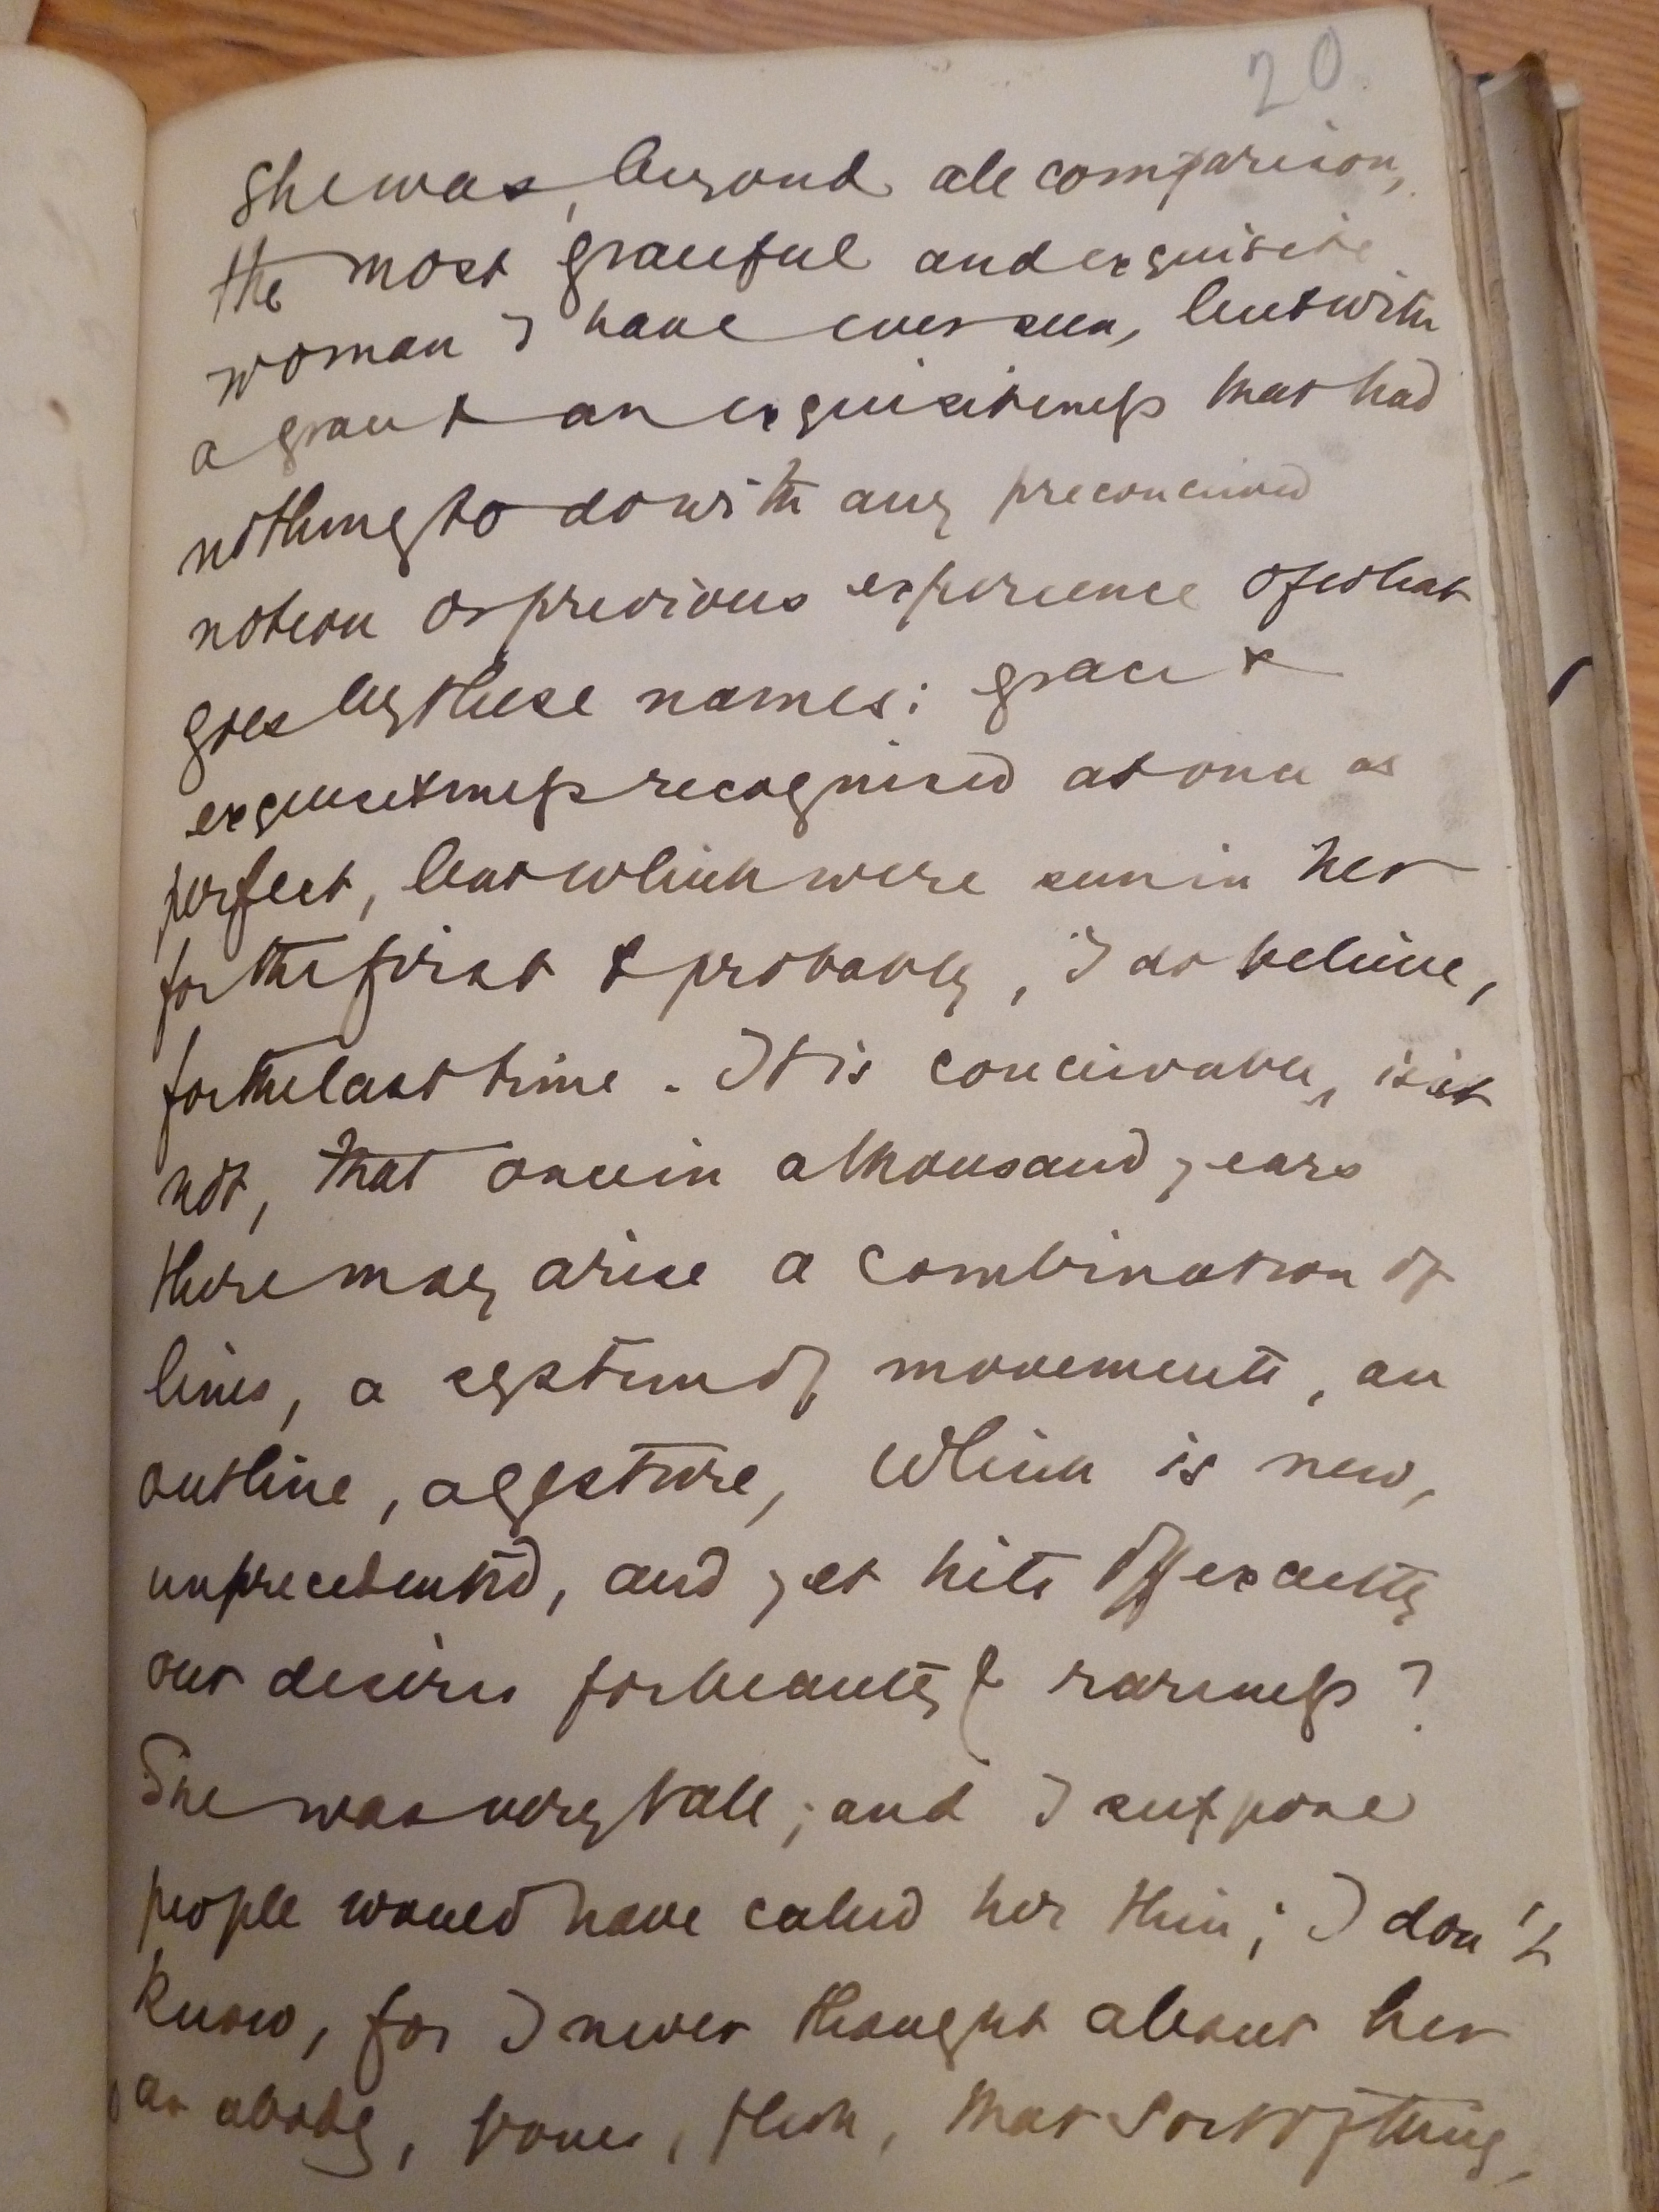 20
She was, beyond all comparison,
the most graceful and exquisite
woman I have ever seen, but with
a grace & an exquisiteness that had
nothing to do with any preconceived
notion or previous experience of what
goes by these names: grace &
exquisiteness recognised at once as
perfect, but which were seen in her
for the first & probably, I do believe,
for the last time. It is conceivable, is it
not, that once in a thousand years
there may arise a combination of
lines, a system of movements, an
outline, a gesture, which is new,
unprecedented, and yet hits off exactly
our desires for beauty & rareness?
She was very tall; and I suppose
people would have called her thin; I don't
know, for I never thought about her
as a body, bones, flesh, that sort of thing,